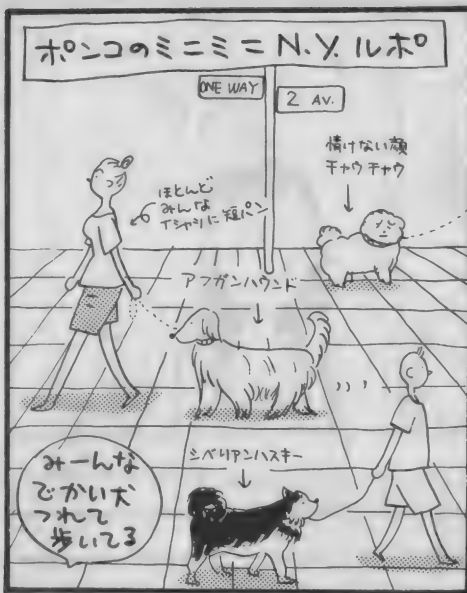 ポンコのミニミニN.Y.ルポ
ONE WAY
2 AV.
情けない顔
チャウチャウ
ほとんど
みんな
Tシャツに短パン
アフガンハウンド
シベリアンハスキー
みーんな
でかい犬
つれて
歩いてる